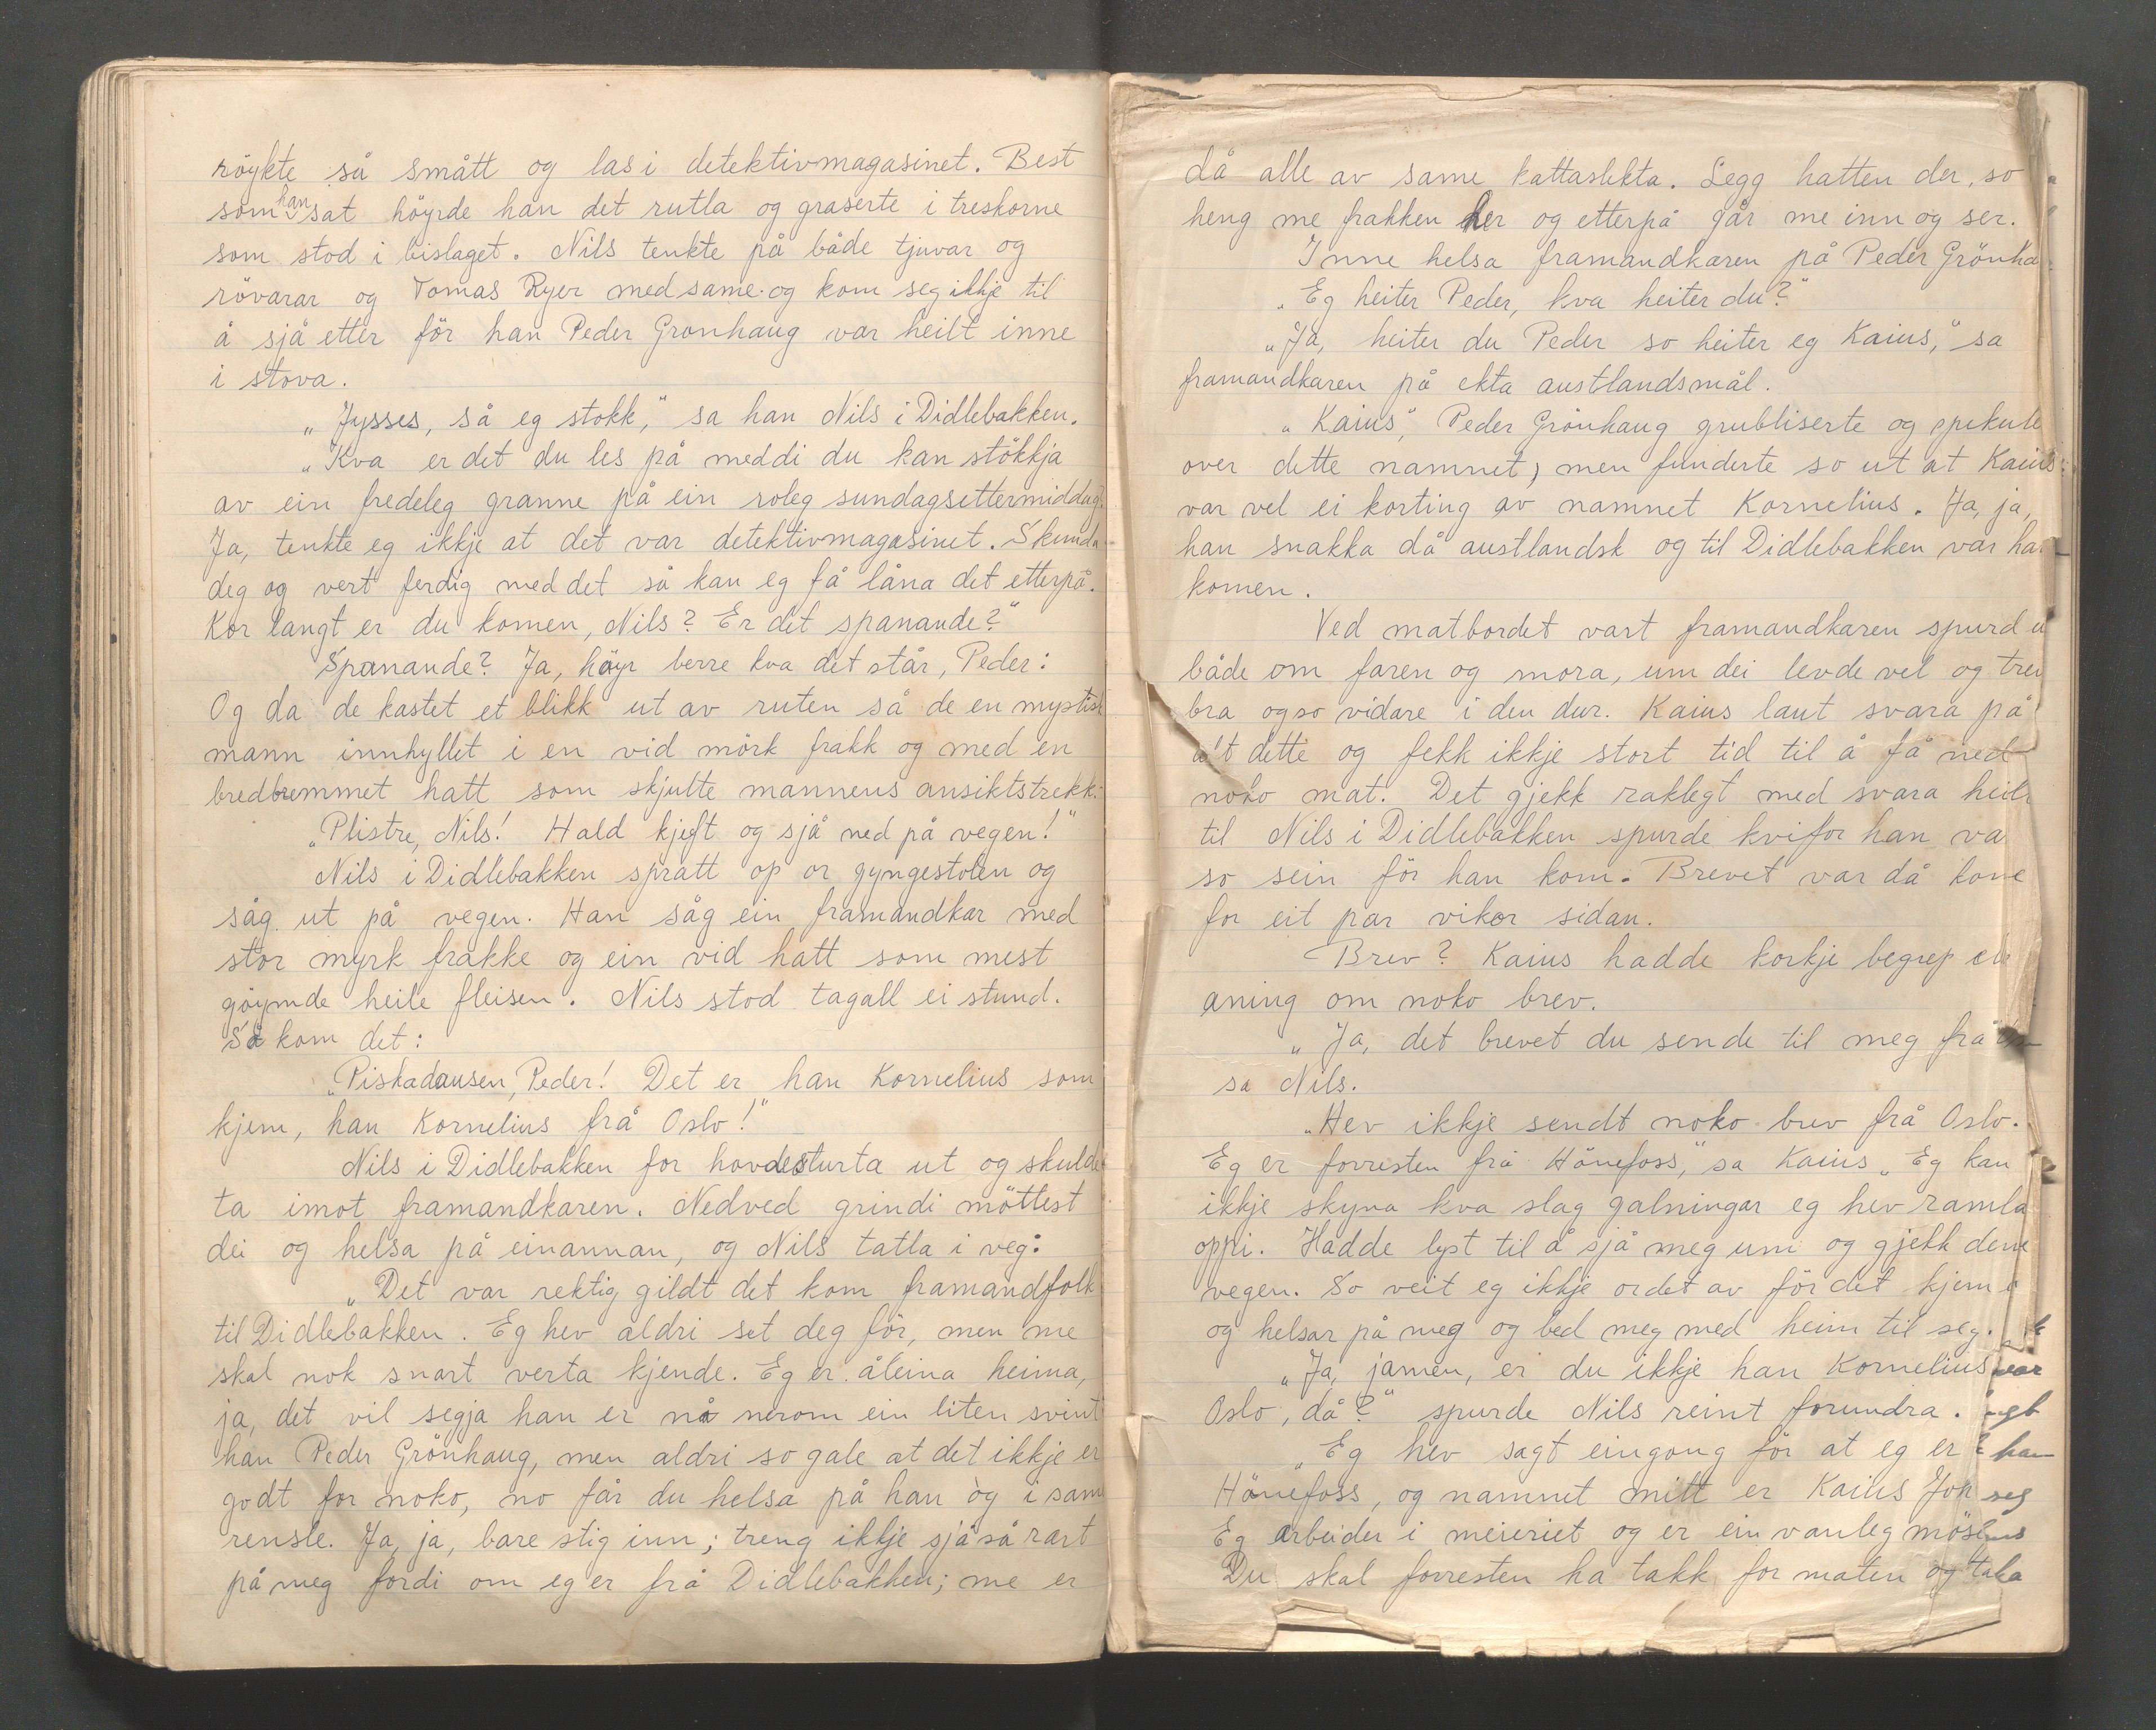 röykte så smått og las i detektivmagasinet. Best
som han sat höyrde han det rutla og graserte i treskorne
som stod i bislaget. Nils tenkte på både tjuvar og
rövarar og Tomas Ryer med same og kom seg ikkje til
å sjå etter för han Peder Grönhaug var heilt inne
i stova.
„Jysses, så eg stokk,“ sa han Nils i Didlebakken.
„Kva er det du les på meddi du kan stökkja
av ein fredeleg granne på ein roleg sundagsettermiddag?
Ja, tenkte eg ikkje at det var detektivmagasinet. Skunda
deg og vert ferdig med det så kan eg få låna det etterpå.
Kor langt er du komen, Nils? Er det spanande?“
Spanande? Ja, höyr berre kva det står, Peder:
Og da de kastet et blikk ut av ruten så de en mystisk
mann innhyllet i en vid mörk frakk og med en
bredbremmet hatt som skjulte mannens ansiktstrekk:
„Plistre, Nils! Hald kjeft og sjå ned på vegen!“
Nils i Didlebakken spratt op or gyngestolen og
såg ut på vegen. Han såg ein framandkar med
stor myrk frakke og ein vid hatt som mest
göymde heile fleisen. Nils stod tagall ei stund.
Så kom det:
„Piskadausen, Peder! Det er han Kornelius som
kjem, han Kornelius frå Oslo!“
Nils i Didlebakken for hovdesturta ut og skulde
ta imot framandkaren. Nedved grindi möttest
dei og helsa på einannan, og Nils tatla i veg:
„Det var rektig gildt det kom framandfolk
til Didlebakken. Eg hev aldri set deg för, men me
skal nok snart verta kjende. Eg er åleina heima,
ja, det vil segja han er nå nerom ein liten svint
han Peder Grönhaug, men aldri so gale at det ikkje er
godt for noko, no får du helsa på han òg i same
rensle. Ja, ja, bare stig inn; treng ikkje sjå så rart
på meg fordi om eg er frå Didlebakken; me er
då alle av same kattaslekta. Legg hatten der, so
heng me frakken her og etterpå går me inn og ser.
Inne helsa framandkaren på Peder Grönha
„Eg heiter Peder, kva heiter du?“
„Ja, heiter du Peder so heiter eg Kaius,“ sa
framandkaren på ekta austlandsmål.
„Kaius“, Peder Grönhaug grubliserte og spekule
over dette namnet, men funderte so ut at Kaius
var vel ei korting av namnet Kornelius. Ja, ja,
han snakka då austlandsk og til Didlebakken var han
komen.
Ved matbordet vart framandkaren spurd u
både om faren og mora, um dei levde vel og trei
bra og so vidare i den dur. Kaius laut svara på
alt dette og fekk ikkje stort tid til å få ned
noko mat. Det gjekk raklegt med svara heilt
til Nils i Didlebakken spurde kvifor han va
so sein för han kom. Brevet var då kome
for eit par vikor sidan.
Brev? Kaius hadde korkje begrep ell
aning om noko brev.
„Ja, det brevet du sende til meg frå
sa Nils.
„Hev ikkje sendt noko brev frå Oslo.
Eg er forresten frå Hönefoss,“ sa Kaius „Eg kan
ikkje skyna kva slag galningar eg hev ramla
oppi. Hadde lyst til å sjå meg um og gjekk denne
vegen. So veit eg ikkje ordet av för det kjem e
og helsar på meg og bed meg med heim til seg.
„Ja, jamen, er du ikkje han Kornelius
Oslo, då?“ spurde Nils reint forundra.
„Eg hev sagt eingong för at eg er
Hönefoss, og namnet mitt er Kaius Joh
Eg arbeider i meieriet og er ein vanleg
Du skal forresten ha takk for maten og